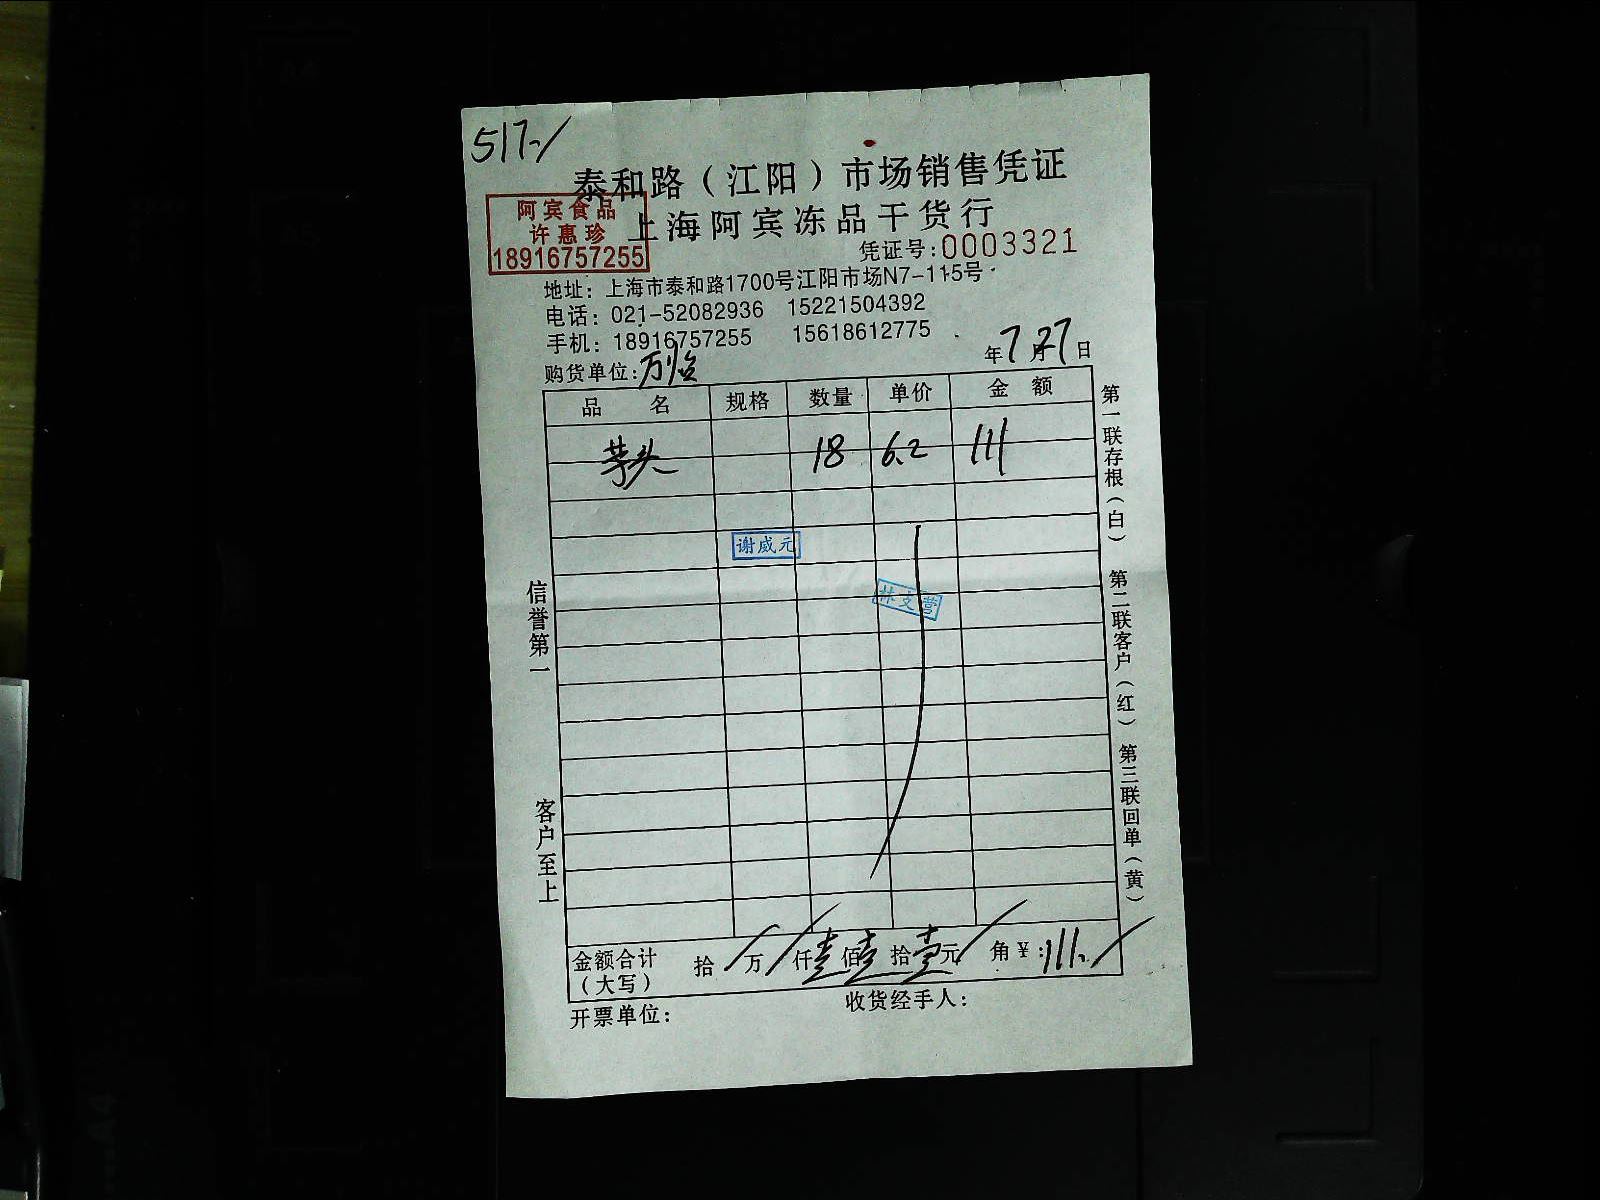 517.-/
泰和路（江阳）市场销售凭证
阿宾食品
许惠珍
18916757255
上海阿宾冻品干货行
凭证号:0003321
地址：上海市泰和路1700号江阳市场N7-115号
电话：021-52082936 15221504392
手机：18916757255 15618612775
年7月27日
购货单位:万
品 名 规格 数量 单价 金 额
芋头 18 6.2 111
谢威元
林文营
信誉第一
客户至上
第一联存根（白） 第二联客户（红） 第三联回单（黄）
金额合计（大写） 拾/万/仟壹佰壹拾壹元/角¥:111.-/
开票单位： 收货经手人：